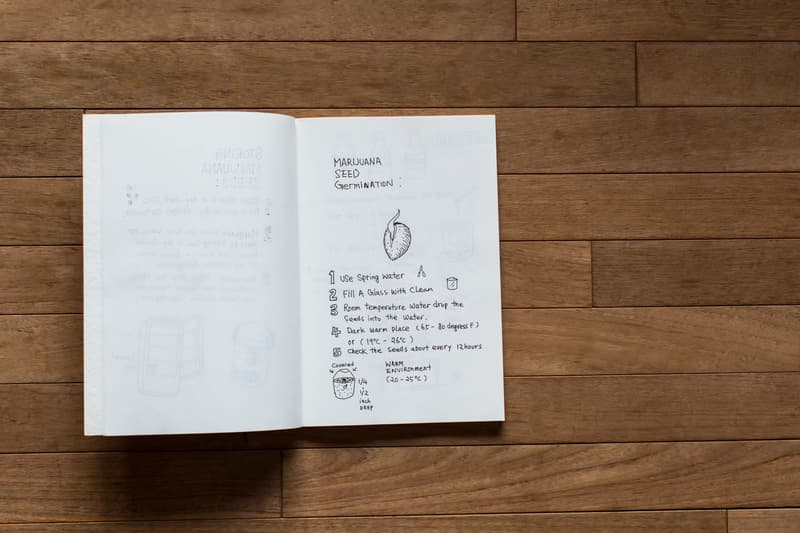 MARIJUANA
SEED
GerMINATION :
1 Use Spring Water
2 Fill A Glass With Clean
3 Room temperature Water drop the
Seeds into the Water.
4 Dark warm place (65 - 80 degress F)
or (19°C - 26°C)
5 Check the Seeds about every 12hours
Covered
1/4
-
1/2
inch
DEEP
WARM
ENVIRONMENT
(20 - 25°C)